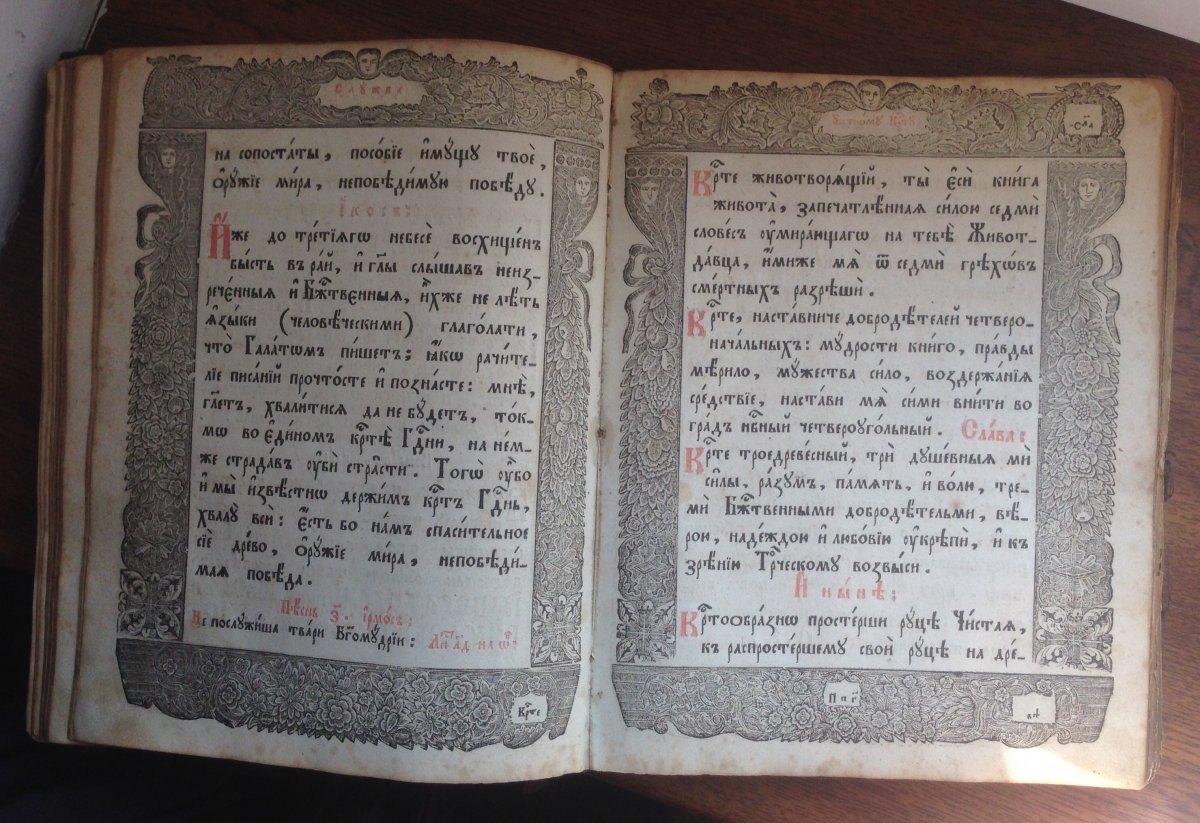 Слꙋжва
на сопоста́ты, посо́бїе и҆мꙋ́щꙋ твоѐ,
ѻ҆рꙋ́жїе ми́ра, непобѣди́мꙋю побѣ́дꙋ.
І҆́косъ:
И҆́же до тре́тїѧгѡ небесѐ восхище́нъ
бы́сть въ ра́й, и҆ гл҃ы слы́шавъ неиз̾-
рече́нныѧ и҆ Бж҃твє́нныѧ, и҆́хже не лѣ́ть
ѧ҆зы́ки (человѣ́ческими) глаго́лати,
что̀ Гала́тѡмъ пи́шетъ; ꙗ҆́кѡ рачи́те-
лїе писа́нїй прочто́сте и҆ позна́сте: мнѣ̀,
гл҃етъ, хвали́тисѧ да не бꙋ́детъ, то́к-
мѡ во є҆ди́номъ кр҃тѣ̀ Гд҃ни, на не́м-
же страда́въ ᲂу҆бѝ стра҃сти. Того̀ ᲂу҆̀бо
и҆ мы̀ и҆звѣ́стнѡ держи́мъ кр҃тъ Гд҃нь,
хвалꙋ̀ всѝ: є҆́сть бо на́мъ спаси́тельное
сїѐ дре́во, ѻ҆рꙋ́жїе ми́ра, непобѣди́-
маѧ побѣ́да.
Пѣ́снь з҃. і҆рмо́съ:
Не послꙋжи́ша тва́ри Бг҃омꙋ́дрїи:
Кр҃те
Кр҃те животворѧ́щїй, ты̀ є҆сѝ кни́га
живота̀, запечатлѣ́ннаѧ си́лою седмѝ
слове́съ ᲂу҆мира́ющагѡ на тебѣ̀ Живот-
да́вца, и҆́миже мѧ̀ ѿ седмѝ грѣхѡ́въ
сме́ртныхъ разрѣшѝ.
Кр҃те, наста́вниче добродѣ́телей четверо-
нача́льныхъ: мꙋ́дрости кни́го, пра́вды
мѣ́рило, мꙋ́жества си́ло, воздержа́нїѧ
сре́дствїе, наста́ви мѧ̀ си́ми вни́ти во
гра́дъ нб҃ный четвероуго́льный. Сла́ва:
Кр҃те троедреве́сный, трѝ дꙋше́вныѧ мѝ
си́лы, ра́зꙋмъ, па́мѧть, и҆ во́лю, тре-
мѝ Бж҃твенными добродѣ́тельми, вѣ́-
рою, наде́ждою и҆ любо́вїю ᲂу҆крѣпѝ, и҆ къ
зрѣ́нїю Тр҃ческомꙋ возвы́си.
И҆ ны́нѣ:
Кр҃тоѻбра́знѡ просте́рши рꙋ́цѣ Чи́стаѧ,
къ распросте́ршемꙋ своѝ рꙋ́цѣ на дре́-
вѣ